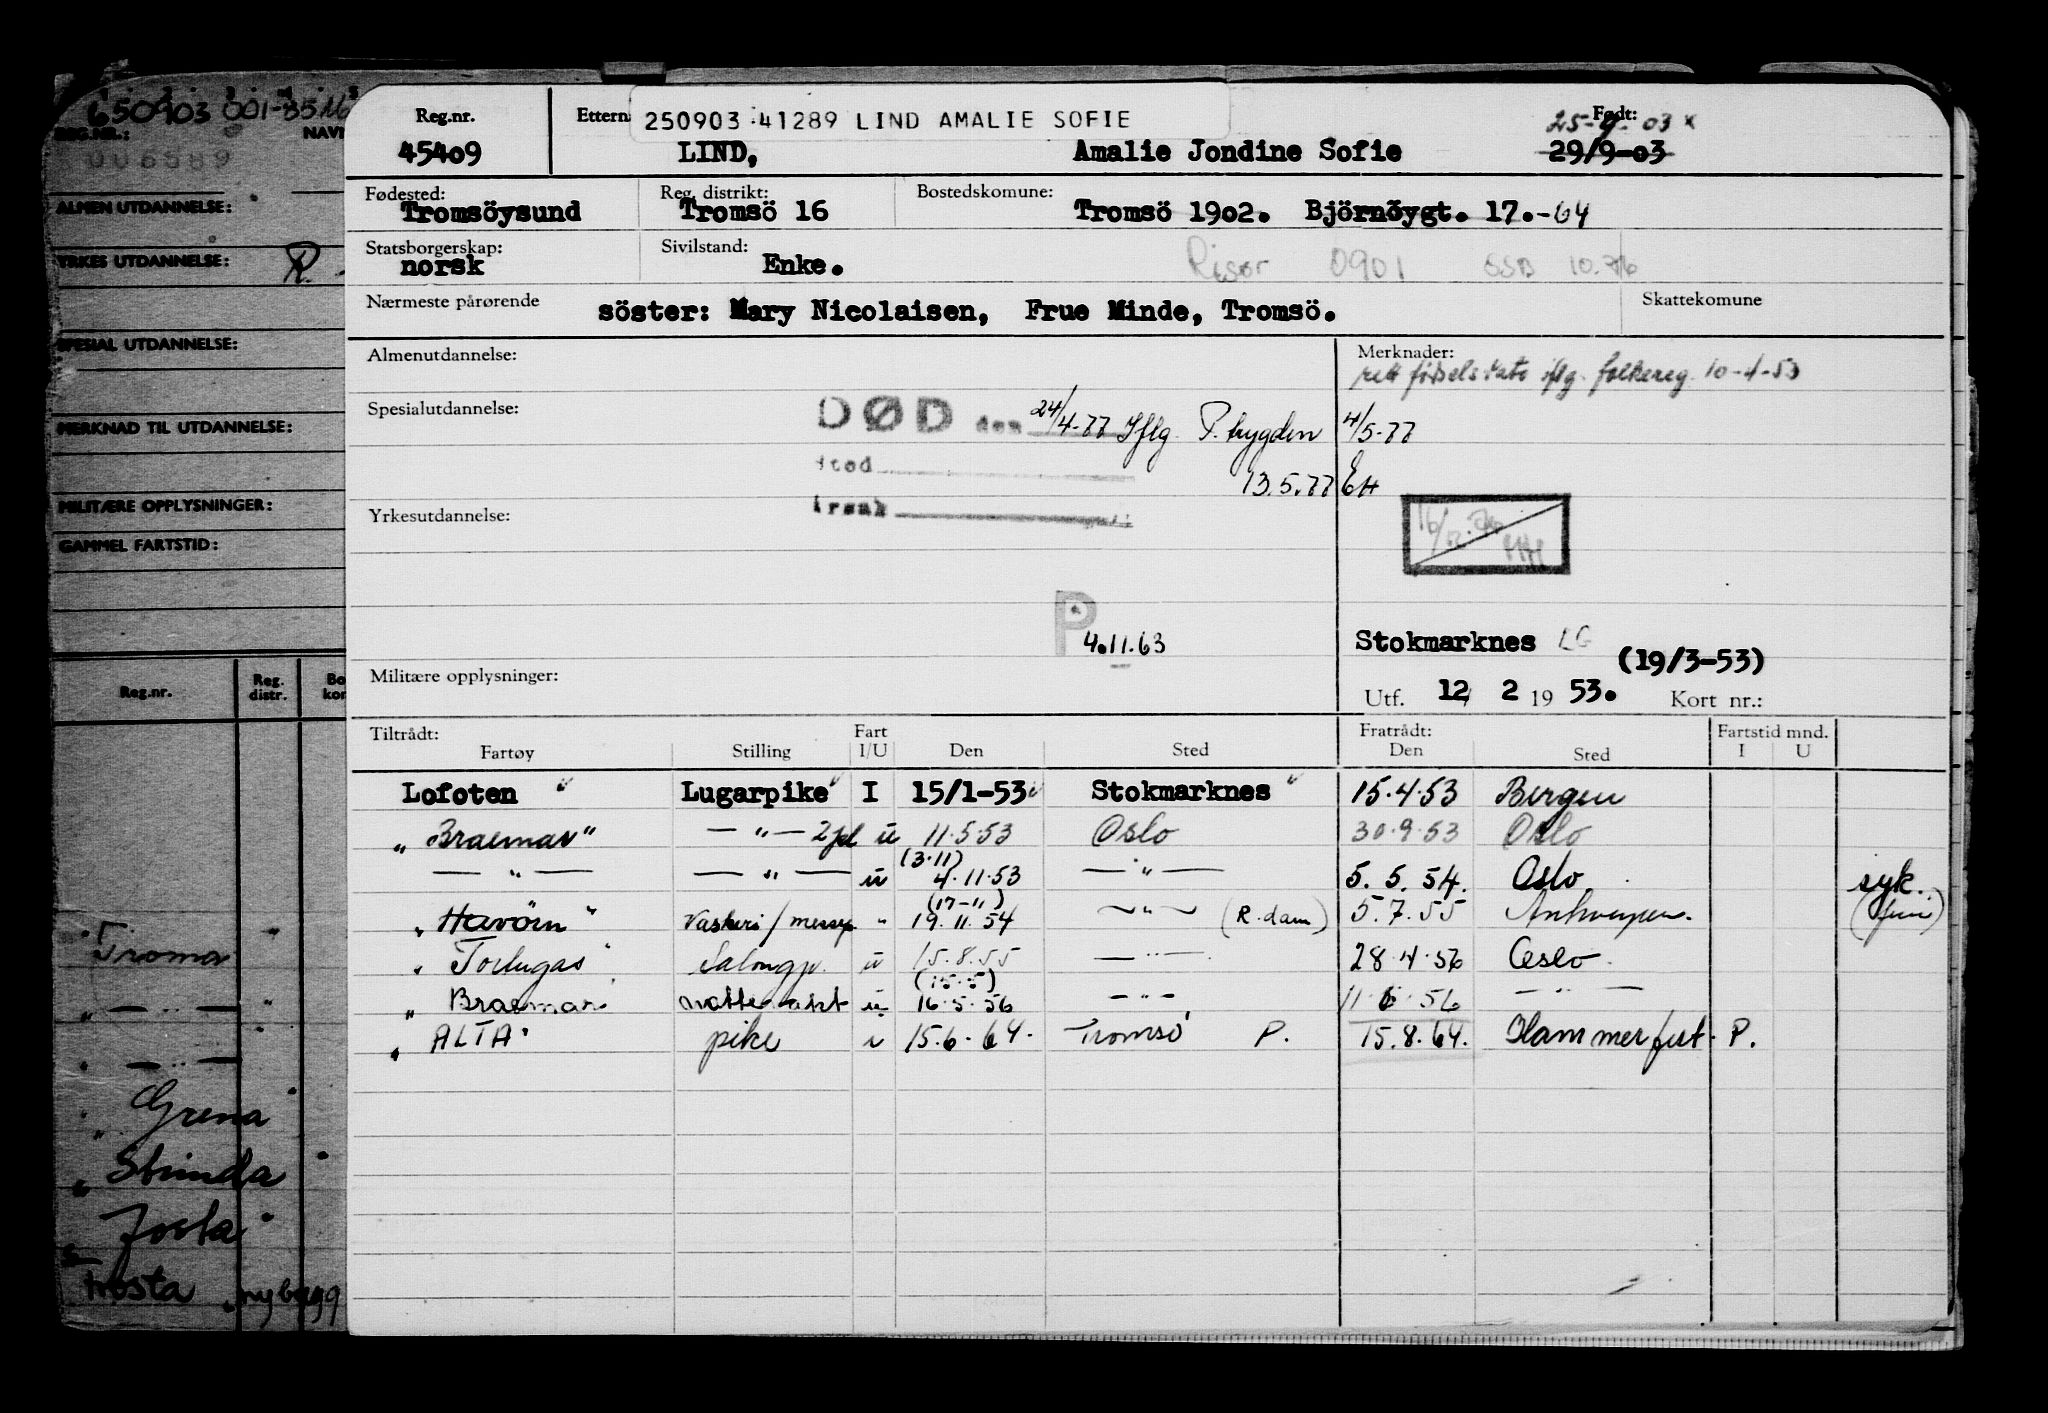 650903 001-35
REG.NR.: NAVN
006589
ALMEN UTDANNELSE:
YRKES UTDANNELSE: R.
SPESIAL UTDANNELSE:
MERKNAD TIL UTDANNELSE:
MILITÆRE OPPLYSNINGER:
GAMMEL FARTSTID:
Reg.nr. Reg. distr. Bo kor
Troma
„ — „ —
„ — „ —
„ Grena
„ Strinda
„ Josta
Trosta
Reg.nr. Ettern 250903 41289 LIND AMALIE SOFIE Født: 25-9-03 x
45409 LIND, Amalie Jondine Sofie 29/9-03
Fødested: Reg. distrikt: Bostedskomune:
Tromsöysund Tromsö 16 Tromsö 1902. Björnöygt. 17.-64
Statsborgerskap: Sivilstand:
norsk Enke. Risør 0901 SSB 10.76
Nærmeste pårørende söster: Mary Nicolaisen, Frue Minde, Tromsö. Skattekomune
Almenutdannelse: Merknader:
rett fødselsdato iflg. folkereg. 10-4-53
Spesialutdannelse: DØD den 24/4-77 Iflg P. trygden 4/5-77
sted 13.5.77 EH
Yrkesutdannelse: årsak
P 4.11.63
Stokmarknes LG (19/3-53)
Militære opplysninger: Utf. 12 2 19 53. Kort nr.:
Tiltrådt: Fart Fratrådt: Fartstid mnd.
Fartøy Stilling I/U Den Sted Den Sted I U
Lofoten Lugarpike I 15/1-53 Stokmarknes 15.4.53 Bergen
„ Braemar" — „ — u 11.5.53 Oslo 30.9.53 Oslo
(3.11)
— „ — — „ — u 4.11.53 — „ — 5.5.54. Oslo syk.
(17-11)
„ Havörn" Vaskeri/messep. " 19.11.54 — „ — (R.dam) 5.7.55 Antwerpen. (juni)
„ Torlugas Salongp. u 15.8.55 — „ — 28.4.56 Oslo.
(15.5)
„ Braemar u 16.5.56 — „ — 11.6.56 — „ —
„ ALTA" pike i 15.6.64. Tromsö P. 15.8.64. Hammerfest. P.